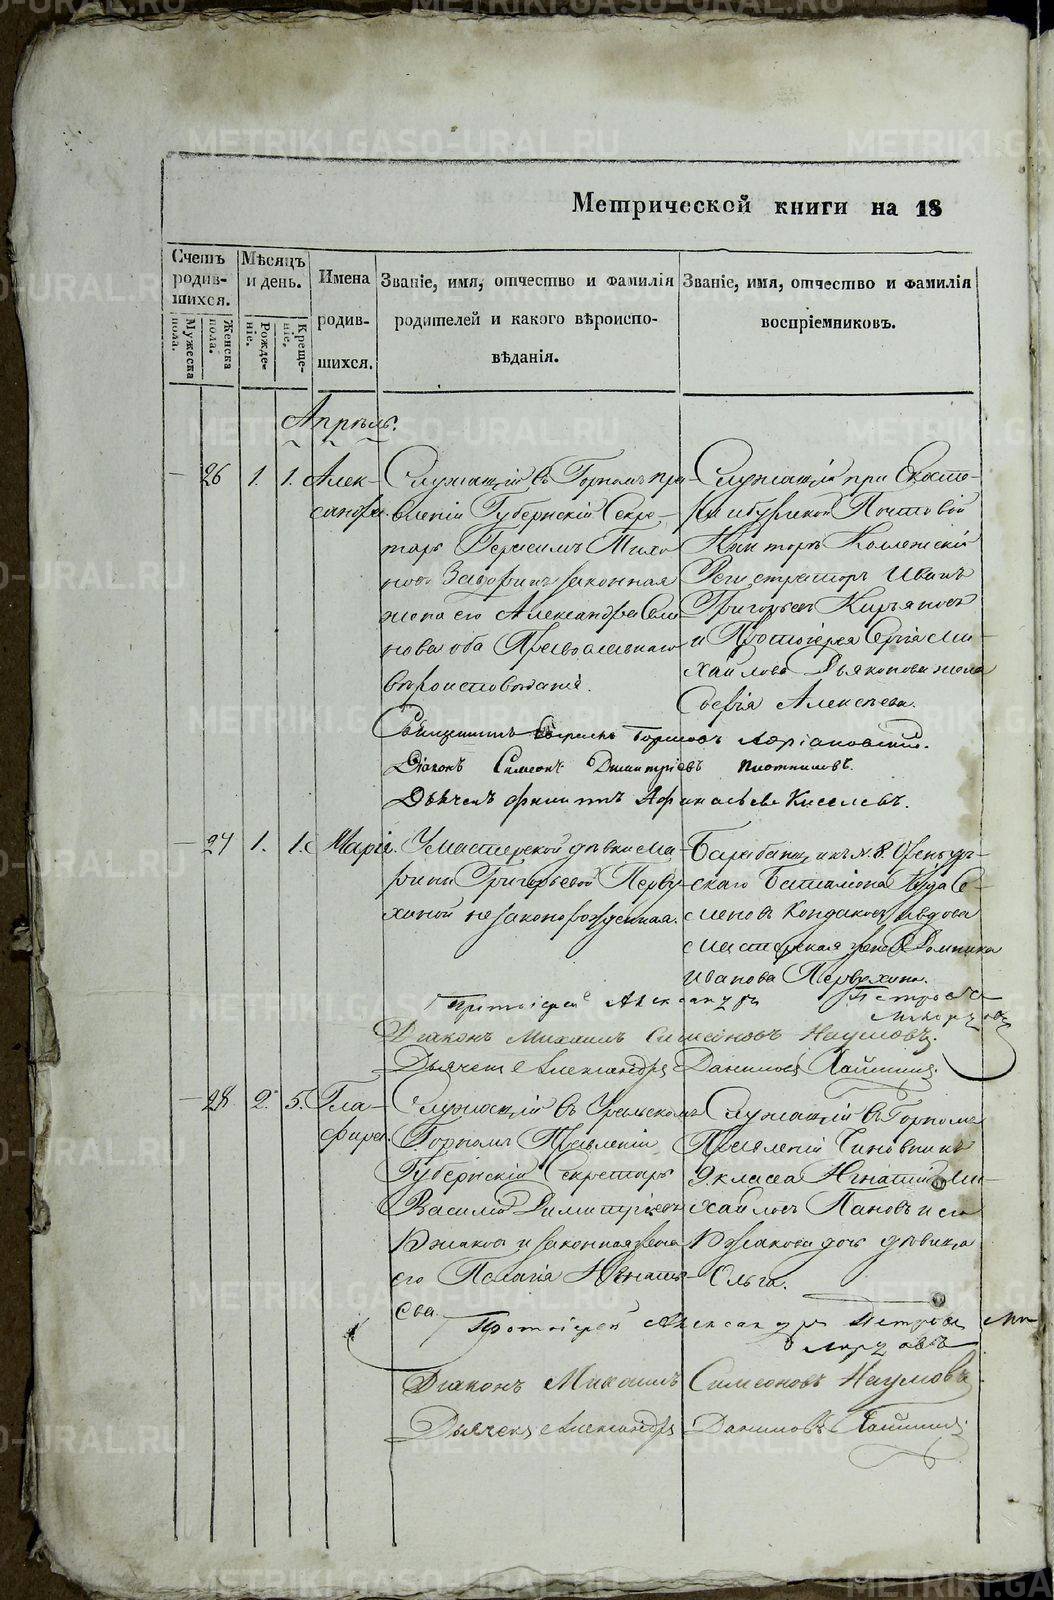 Метрической книги на 18
Счетъ родив-шихся.
Мужеска пола.
Женска пола.
Мѣсяцъ и день.
Рожде-ніе.
Креще-ніе.
Имена родив-шихся.
Званіе, имя, отчество и фамилія родителей и какого вѣроиспо-вѣданія.
Званіе, имя, отчество и фамилія воспріемниковъ.
Апрѣль.
26 1. 1. Алек-
сандра.
Служащій въ Горномъ пра-
вленіи Губернскій Секре-
тарь Герасимъ Тихо
новъ законная
жена его Александра Семе
нова оба Православнаго
вѣроисповѣданія.
Служащій при Екате-
ринбургской Почтовой
Конторѣ Коллежскій
Регистраторъ Иванъ
Григорьевъ Кирьяновъ
и Протоіерея Сергія Ми-
хайлова Дьяконова жена
Софія Алексѣева.
Священникъ
Діаконъ Симеонъ Димитріевъ Плотниковъ.
Дьячекъ Филиппъ Афанасьевъ Киселевъ.
27 1. 1. Марія.
У мастерской дѣвки Ма-
рины Григорьевой Перву-
хиной незаконорожденная.
Барабанщикъ №. 8. Оренбур-
скаго Баталіона Се-
меновъ Кондаковъ и вдова
мастерская жена Домника
Иванова Первухина.
Протоіерей Александръ Петровъ
Діаконъ Михаилъ Симеоновъ Наумовъ.
Дьячекъ Александръ Даниловъ
28 2. 5. Гла-
фира.
Служащій въ Уральскомъ
Горномъ Правленіи
Губернскій Секретарь
Василій Димитріевъ
и законная жена
его Пелагія Игнатье
ева.
Служащій въ Горномъ
Правленіи Чиновникъ
9 класса Игнатій Ми-
хайловъ Пановъ и его
дочь дѣвица
Ольга.
Протоіерей Александръ Петровъ
Діаконъ Михаилъ Симеоновъ Наумовъ
Дьячекъ Александръ Даниловъ
METRIKI.GASO-URAL.RU